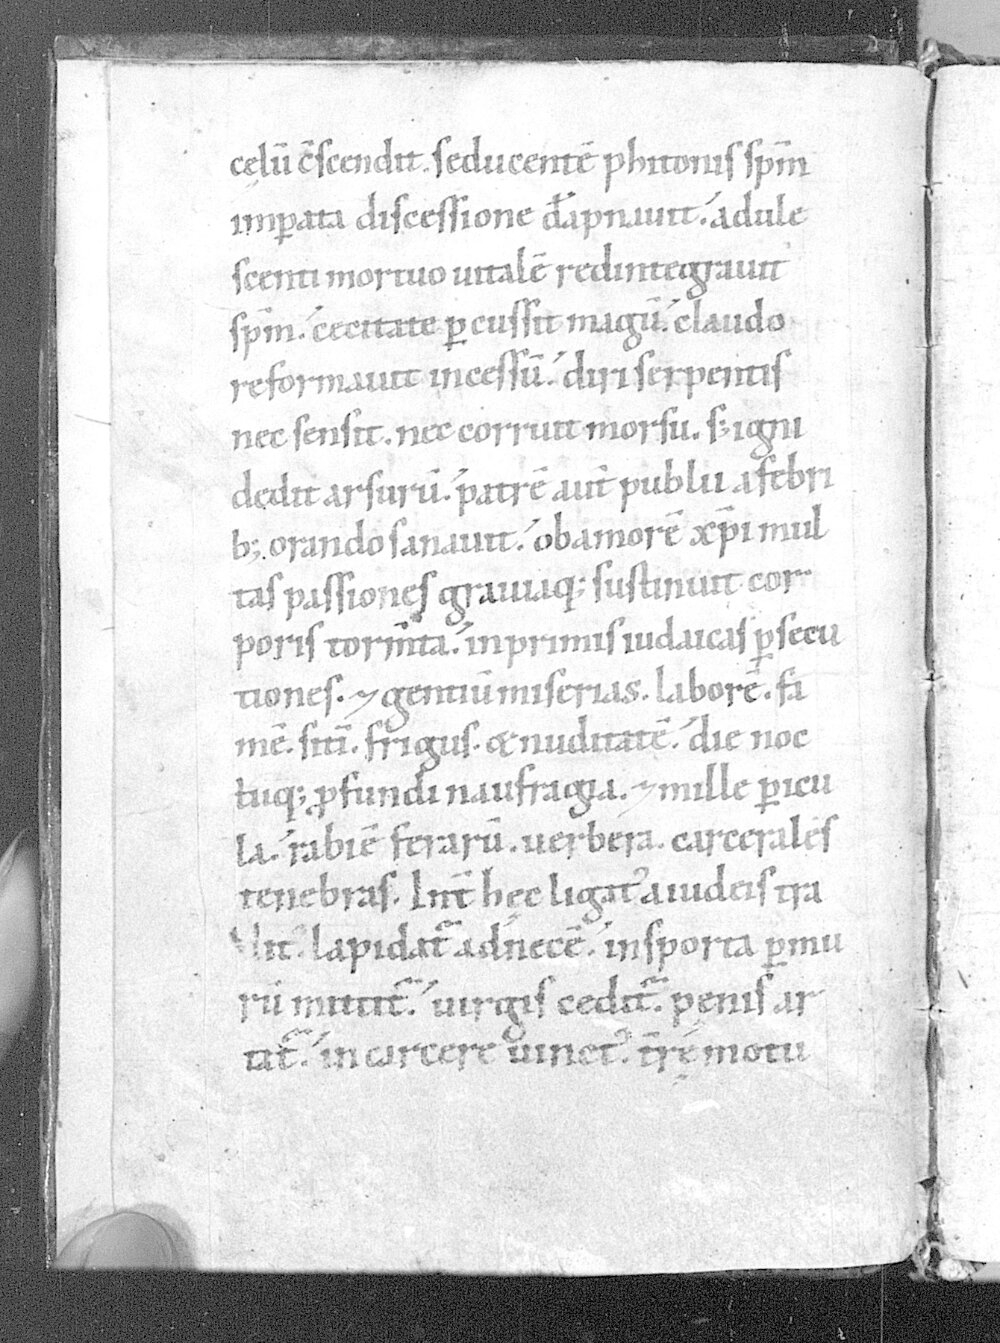 cęlū c̄scendit. seducentē phitonis sp̄m
imꝑata discessione dāpnauit. adule
scenti mortuo uitalē redintegrauit
sp̄m. cecitate ꝑcussit magū. claudo
reformauit incessū. diri serpentis
nec sensit. nec corruit morsu. s; igni
dedit arsurū. patrē aut̄ publii a febri
b; orando sanauit. ob amorē xp̄i mul
tas passiones grauiaq; sustinuit cor
poris torm̄ta. inprimis iudaicas ꝑsecu
tiones. ⁊ gentiū miserias. laborē. fa
mē. sitī. frigus. & nuditatē. die noc
tuq; ꝓfundi naufragia. ⁊ mille ꝑicu
la. rabiē ferarū. uerbera. carcerales
tenebras. Int̄ hec ligat᷒ a iudeis tra
hit᷒. lapidat᷒ ad necē. in sporta ꝑ mu
rū mittit᷒. uirgis cedit᷒. penis ar
tat᷒. in carcere uinct᷒. t̄rę motu